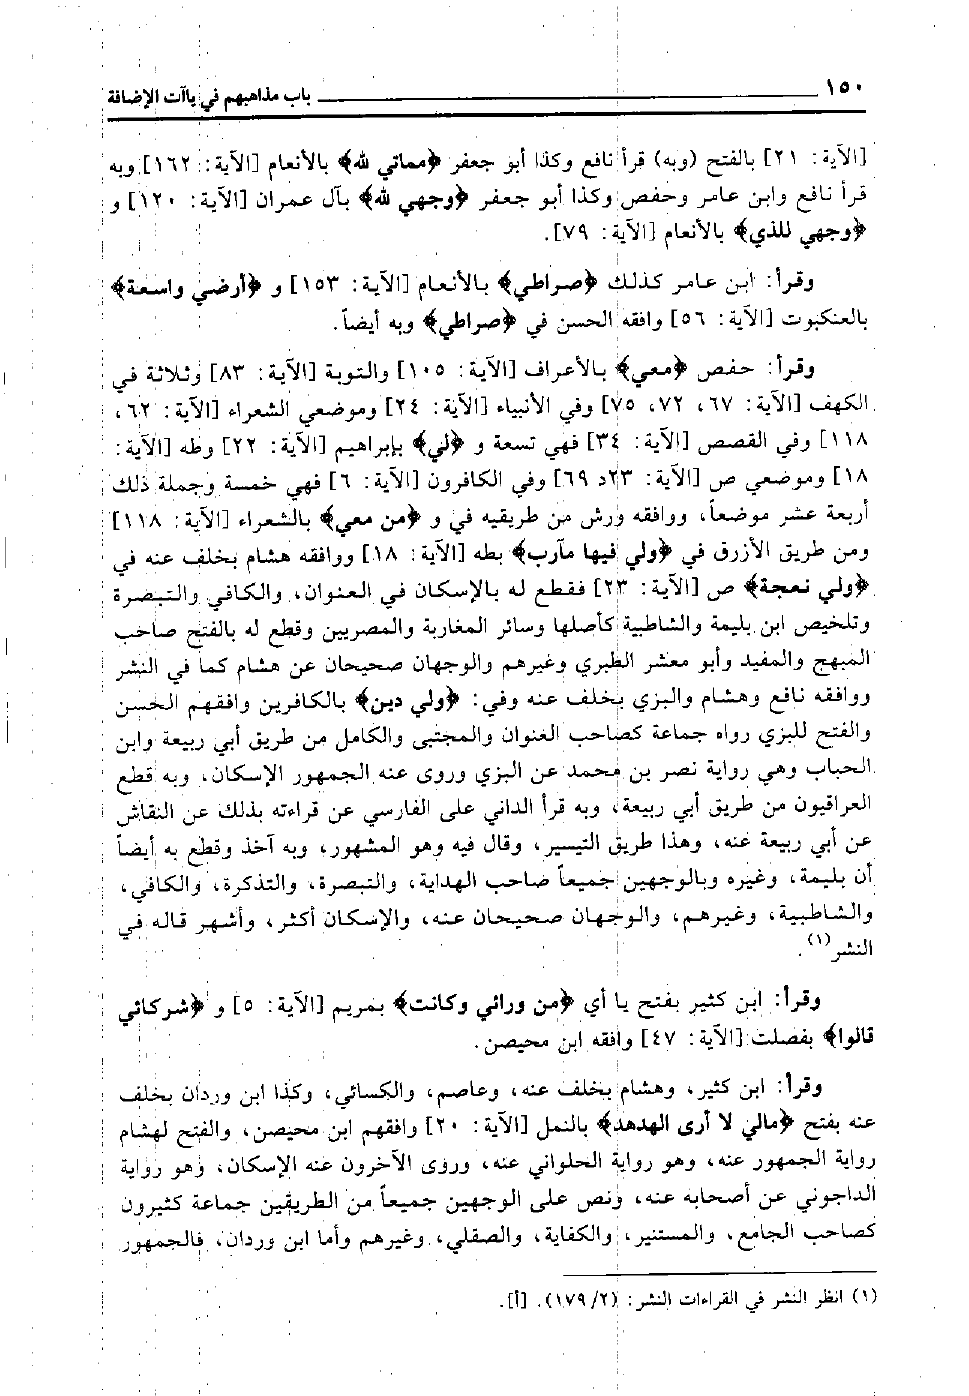 ١٥٠ باب مذاهبهم في ياآت الإضافة
[الآية: ٢١] بالفتح (وبه) قرأ نافع وكذا أبو جعفر ﴿مماتي لله﴾ بالأنعام [الآية: ١٦٢] وبه
قرأ نافع وابن عامر وحفص وكذا أبو جعفر ﴿وجهي لله﴾ بآل عمران [الآية: ١٢٠] و
﴿وجهي للذي﴾ بالأنعام [الآية: ٧٩].
وقرأ: ابن عامر كذلك ﴿صراطي﴾ بالأنعام [الآية: ١٥٣] و ﴿أرضي واسعة﴾
بالعنكبوت [الآية: ٥٦] وافقه الحسن في ﴿صراطي﴾ وبه أيضاً.
وقرأ: حفص ﴿معي﴾ بالأعراف [الآية: ١٠٥] والتوبة [الآية: ٨٣] وثلاثة في
الكهف [الآية: ٦٧، ٧٢، ٧٥] وفي الأنبياء [الآية: ٢٤] وموضعي الشعراء [الآية: ٦٢،
١١٨] وفي القصص [الآية: ٣٤] فهي تسعة و ﴿لي﴾ بإبراهيم [الآية: ٢٢] وطه [الآية:
١٨] وموضعي ص [الآية: ٢٣د ٦٩] وفي الكافرون [الآية: ٦] فهي خمسة وجملة ذلك
أربعة عشر موضعاً، ووافقه ورش من طريقيه في و ﴿من معي﴾ بالشعراء [الآية: ١١٨]
ومن طريق الأزرق في ﴿ولي فيها مآرب﴾ بطه [الآية: ١٨] ووافقه هشام بخلف عنه في
﴿ولي نعجة﴾ ص [الآية: ٢٣] فقطع له بالإسكان في العنوان، والكافي والتبصرة
وتلخيص ابن بليمة والشاطبية كأصلها وسائر المغاربة والمصريين وقطع له بالفتح صاحب
المبهج والمفيد وأبو معشر الطبري وغيرهم والوجهان صحيحان عن هشام كما في النشر
ووافقه نافع وهشام والبزي بخلف عنه وفي: ﴿ولي دين﴾ بالكافرين وافقهم الحسن
والفتح للبزي رواه جماعة كصاحب العنوان والمجتبى والكامل من طريق أبي ربيعة وابن
الحباب وهي رواية نصر بن محمد عن البزي وروى عنه الجمهور الإسكان، وبه قطع
العراقيون من طريق أبي ربيعة، وبه قرأ الداني على الفارسي عن قراءته بذلك عن النقاش
عن أبي ربيعة عنه، وهذا طريق التيسير، وقال فيه وهو المشهور، وبه آخذ وقطع به أيضاً
أن بليمة، وغيره وبالوجهين جميعاً صاحب الهداية، والتبصرة، والتذكرة، والكافي،
والشاطبية، وغيرهم، والوجهان صحيحان عنه، والإسكان أكثر، وأشهر قاله في
النشر(١).
وقرأ: ابن كثير بفتح يا أي ﴿من ورائي وكانت﴾ بمريم [الآية: ٥] و ﴿شركائي
قالوا﴾ بفصلت [الآية: ٤٧] وافقه ابن محيصن.
وقرأ: ابن كثير، وهشام بخلف عنه، وعاصم، والكسائي، وكذا ابن وردان بخلف
عنه بفتح ﴿مالي لا أرى الهدهد﴾ بالنمل [الآية: ٢٠] وافقهم ابن محيصن، والفتح لهشام
رواية الجمهور عنه، وهو رواية الحلواني عنه، وروى الآخرون عنه الإسكان، وهو رواية
الداجوني عن أصحابه عنه، ونص على الوجهين جميعاً من الطريقين جماعة كثيرون
كصاحب الجامع، والمستنير، والكفاية، والصقلي، وغيرهم وأما ابن وردان، فالجمهور
(١) انظر النشر في القراءات النشر: (١٧٩/٢). [أ].